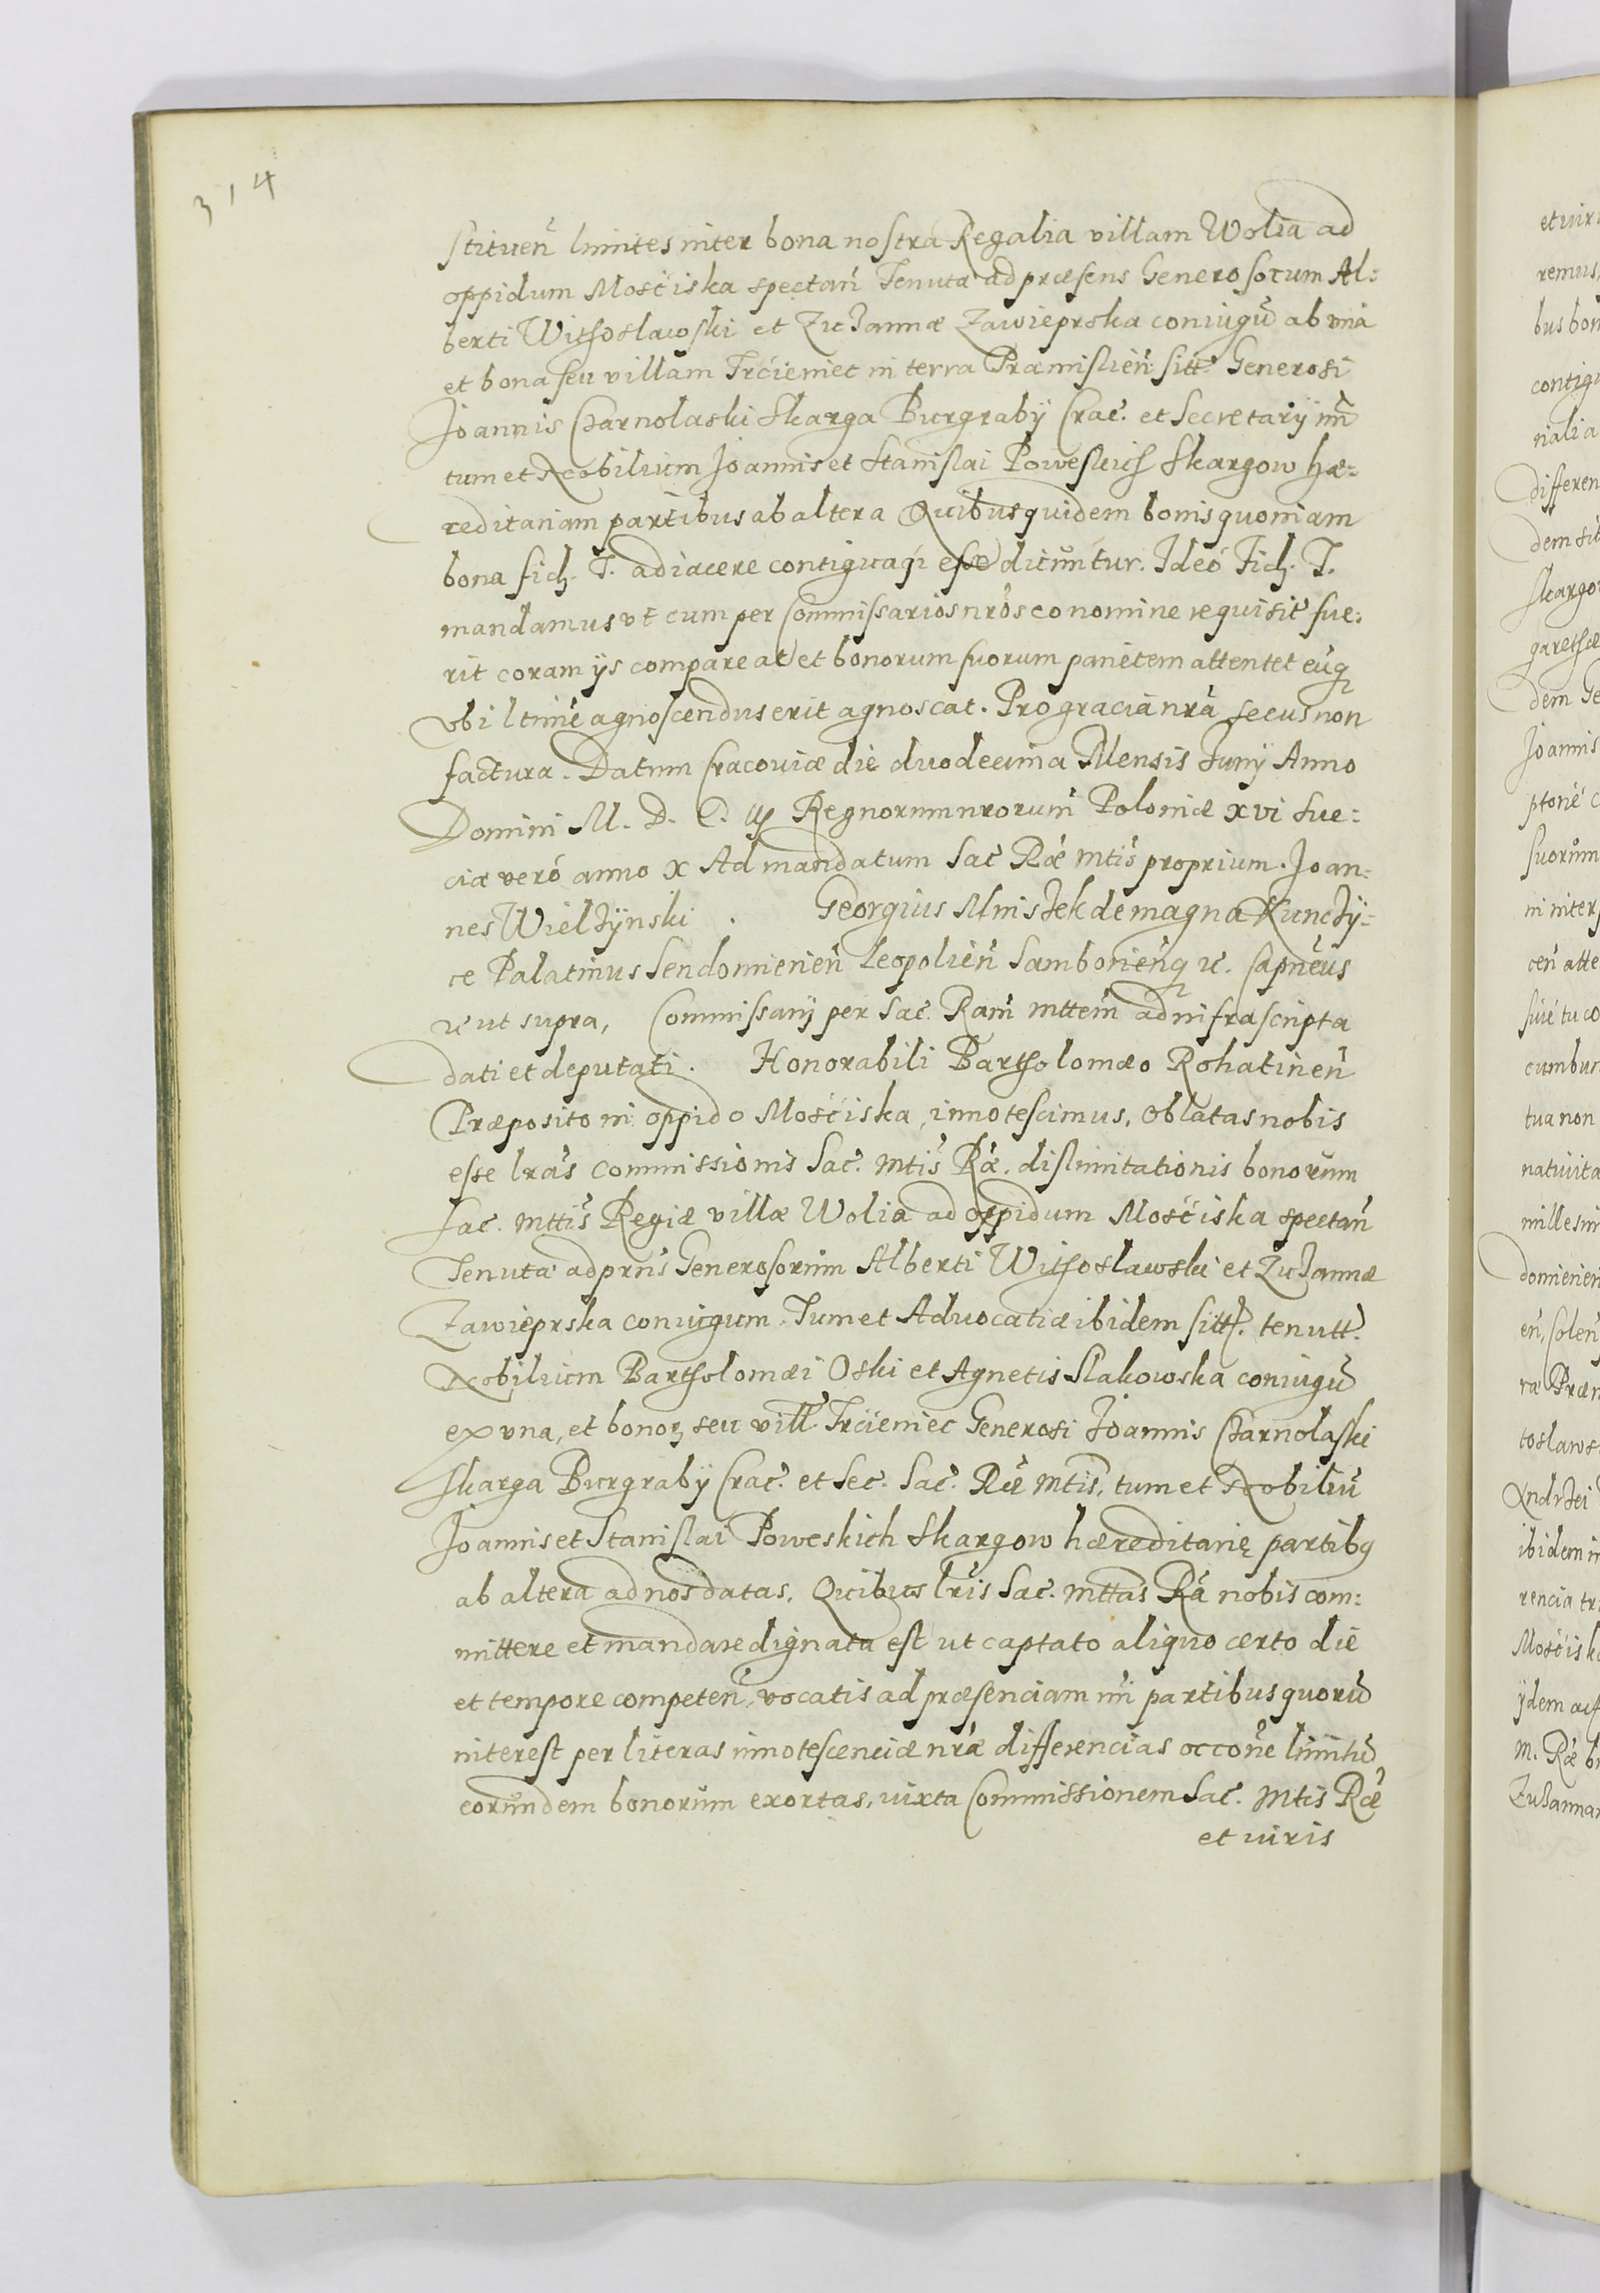 314
stituen̄ limites inter bona nostra Regalia villam Wolia ad
oppidum Mosciska spectan̄ Tenuta ad præsens Generosorum Al:
berti Withoslawski et Zuzannæ Zawieprska coniugū ab una
et bona seu villam Trcieniec in terra Præmislien̄ sitt. Generosi
Joannis Czarnolaski Skarga Burgrabÿ Crac. et Secretarÿ nr̄i
tum et Nobilium Joannis et Stanislai Poweskich Skargow hæ:
reditariam partibus ab altera Quibus quidem bonis quoniam
bona fid. T. adiacere contiguaq esse dicuntur. Ideo Fid. T.
mandamus vt cum per Commissarios nros eo nomine requisit fue:
rit coram ÿs compareat et bonorum suorum parietem attentet eūq
vbi ltime agnoscendus erit agnoscat. Pro gracia nrā secus non
factura. Datum Cracoviæ die duodecima Mensis Junÿ Anno
Domini M. D. C. iij Regnorum nrorum Poloniæ xvi Sue:
ciæ vero anno x Ad mandatum Sac Ræ mtis proprium. Joan:
nes Wielzÿnski. Georgius Mniszek de magna Kunczÿ:
ce Palatinus Sendomierien̄ Leopolien̄ Samborien̄q &. Capneus
& ut supra, Commissarij per Sac. Ram mttem ad infrascripta
dati et deputati. Honorabili Bartholomæo Rohatinen̄
Præposito in oppido Mosciska, innotescimus, oblatas nobis
esse lras commissionis Sac. mtis Ræ. dislimitationis bonorum
Sac. mttis Regiæ villæ Wolia ad oppidum Mosciska spectan̄
Tenuta ad prns Generosorum Alberti Withoslawski et Zuzannæ
Zawieprska coniugum. Tum et Advocatiæ ibidem sitt. tenutt.
Nobilium Bartholomæi Oski et Agnetis Slakowska coniugū
ex vna, et bonor seu vill Trcieniec Generosi Joannis Czarnolaski
Skarga Burgrabÿ Crac. et Sec. Sac. Ræ mtis, tum et Nobiliū
Joannis et Stanislai Poweskich Skargow hæreditarię partibq
ab altera ad nos datas. Quibus lris Sac. mttas Ra nobis com:
mittere et mandare dignata est ut captato aliquo certo die
et tempore competen̄, vocatis ad præsenciam nr̄i partibus quorū
interest per literas innotescenciæ nræ differencias occōne limitū
eorundem bonorum exortas, iuxta Commissionem Sac. mtis Ræ
et iuris